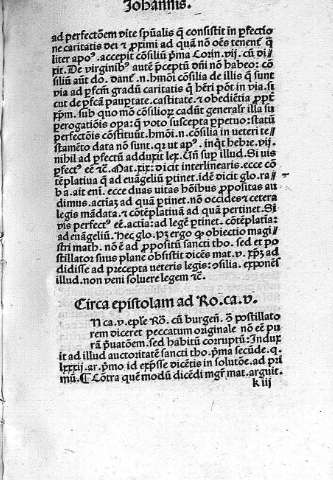 Johannis.
ad perfectõem vite spũalis q̃ consistit in p̃fectio
ne caritatis dei ⁊ p̃ximi ad quã nõ oẽs tenent᷑ q̃
liter apo᷒. accepit cõsiliũ p̃ma Corin. vij. cũ di-
xit. De virginib᷒ autẽ p̃ceptũ dñi nõ habeo: cõ
siliũ aũt do. dant᷑. n. hmõi. cõsilia de illis q̃ sunt
via ad p̃fcm̃ gradũ caritatis q̃ hẽri põt in via. si
cut de p̃fcã paupertate. castitate ⁊ obediẽtia p̃p̃t
xp̃m. sub quo mõ cõsilioꝝ cadũt generalr̃ illa su
perogatiõis opa: q̃ voto suscepta p̃petuo: statũ
perfectõis cõstituũt. hmõi. n. cõsilia in veteri te
stamẽto data nõ sunt. q̃ ut ap᷒. inqt̃ hebre. vij.
nihil ad p̃fectũ adduxit lex. Un̄ sup illud. Si vis
p̃fect᷒ eẽ ⁊c̃. Mat. xix: dicit interlinearis. ecce cõ
tẽplatiua q̃ ad euãgeliũ p̃tinet. idẽ dicit glo. ra-
ba. ait eni. ecce duas vitas hõibus p̃positas au
dimus. actiaʒ ad quã p̃tinet. nõ occides ⁊ cetera
legis mãdata. ⁊ cõtẽplatiuã ad quã pertinet. Si
vis perfect᷒ eẽ. actia: ad legẽ p̃tinet. cõtẽplatia:
ad euangeliũ. Hec glo. pʒ ergo q̃ obiectio magi
stri math. nõ ẽ ad p̃positũ sancti tho. sed et po
stillator sñus plane obsistit dicẽs mat. v. xp̃ʒ ad
didisse ad precepta veteris legis: cõsilia. exponẽs
illud. non veni soluere legem ⁊c̃.
Circa epistolam ad Ro. ca. v.
N ca. v. ep̃le Rõ. cũ burgeñ. õ postillato
rem diceret peccatum originale nõ eẽ pu
rã p̃uatõem. sed habitũ corruptũ: Indux
it ad illud auctoritatẽ sancti tho. p̃ma secũde. q.
lxxxij. ar. p̃mo id exp̃sse dicẽtis in solutõe. ad pri
mũ. ¶ Cõtra quẽ modũ dicẽdi mgr̃ mat. arguit.
k iij